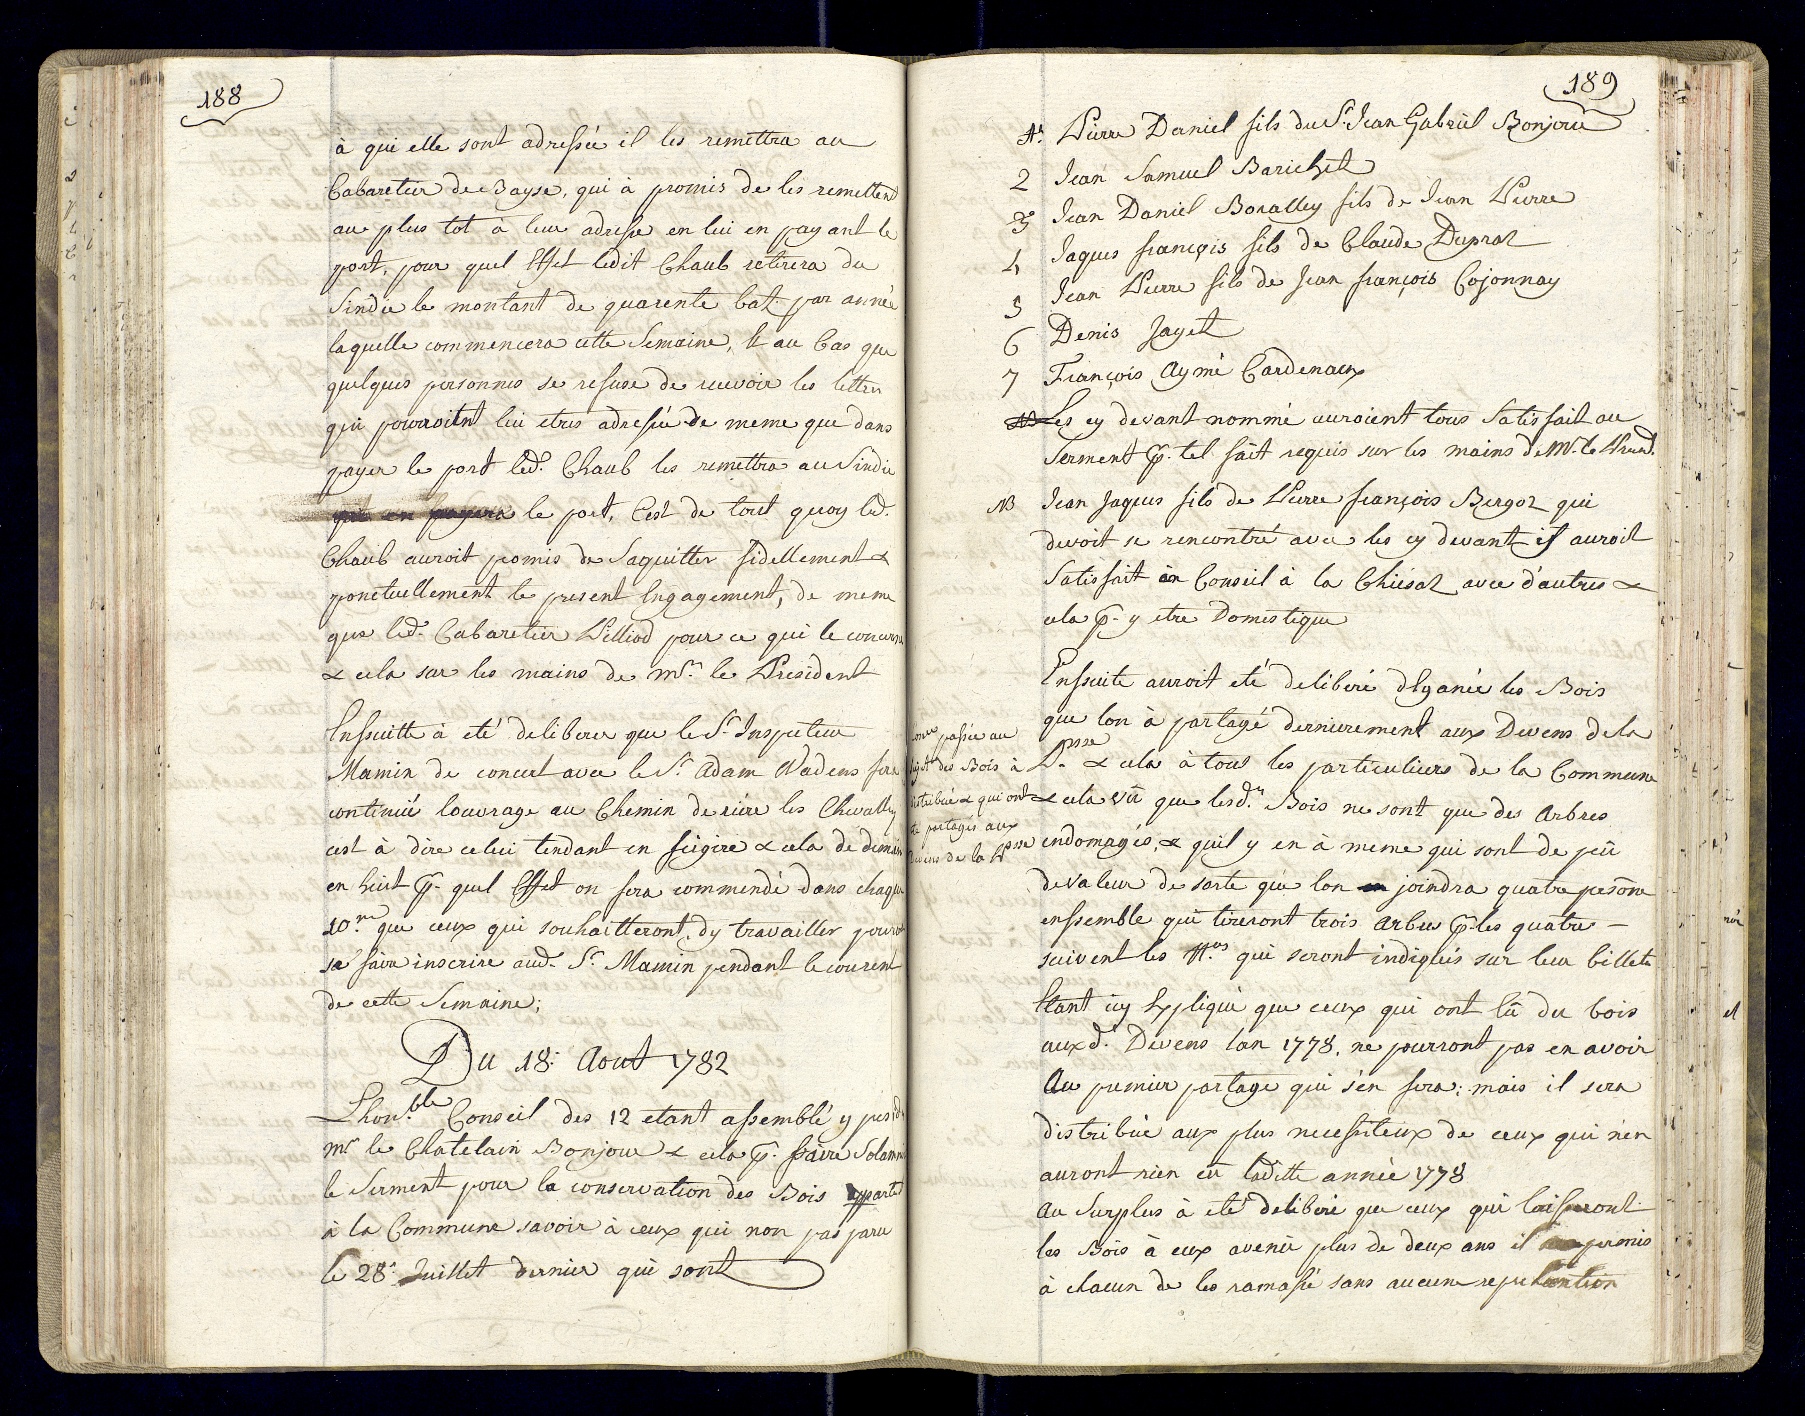 188
à qui elle sont adressée il les remettra au
Cabaretier de Bayse, qui à promis de les remettend
au plus tot à leur adresse en lui en payant le
port, pour quel Effet ledit Chaub retirera du
Sindic le montant de quarente batz par année
laquelle commencera cette Semaine, Et au Cas que
quelques personnes se refuse de recevoir les lettres
qui pouroitnt lui etres adressée de meme que dans
payer le port led.t Chaub les remettra au Sindic
qui en payera le port, C'est de tout quoy led.
Chaub auroit promis de Saquitter fidellement &
ponctuellement le present Engagement, de meme
que led.t Cabaretier Pilliod pour ce qui le concerne
& cela sur les mains de mr. le President
Ensuitte à eté deliberer que le Sr. Inspecteur
Mamin de concert avec le Sr. Adam Wadens fera
continué louvrage au Chemin de riére les Chevalley
cest à dire celui tendant en feigire & cela de demain
en huit p. quel Effet on sera commendé dans chaque
10.ne que ceux qui souhaitteront dy travailler pouront
se faire inscrire aud. Sr. Mamin pendant le courent
de cette Semaine;
Du 18: Aout 1782
Lhon.ble Conseil des 12 etant assemblé y presid
mr le Chatelain Bonjour & cela p. faire Solanni
le Serment pour la conservation des Bois appartent
à la Commune savoir à ceux qui non pas paru
le 28: Juillet dernier qui sont
189
Pierre Daniel fils du Sr. Jean Gabriel Bonjour
2 Jean Samuel Barichet
3 Jean Daniel Boralley fils de Jean Pierre
4 Jaques françois fils de Claude Dupraz
5 Jean Pierre fils de Jean françois Cojonnay
6 Denis Jayet
7 François Aymé Cardenaux
Les cy devant nommé auroient tous Satisfait au
Serment p. tel fait requis sur les mains de Mr. le Presid.
NB Jean Jaques fils de Pierre françois Bergoz qui
devoit se rencontré avec les cy devant il auroit
Satisfait en Conseil à la Chiésaz avec d'autres &
cela p. y etre Domestique
Ensuite auroit eté deliberé dEganée les Bois
que lon à partagé dernierement aux Devens de la
P.sse & cela à tous les particuliers de la Commune
& cela vû que lesd.ts Bois ne sont que des Arbres
endomagés, & quil y en à meme qui sont de peû
de valeur de sorte que lon en joindra quatre pesône
enssemble qui tireront trois Arbre p. les quatre
suivent les N.os qui seront indiqués sur leur billets
Etant icy Expliqué que ceux qui ont Eû du bois
aux d.t Devens lan 1778, ne pourront pas en avoir
Au premier partage qui s'en fera; mais il sera
distribûé aux plus necessiteux de ceux qui n'en
auront rien eû laditte année 1778
Au Surplus à eté deliberé que ceux qui laisseront
les Bois à eux avenir plus de deux ans il permis
à chacun de les ramassé sans aucune reprehention
passée au
des Bois à
distribuée & qui ont
partagés aux
Devens de la P.sse